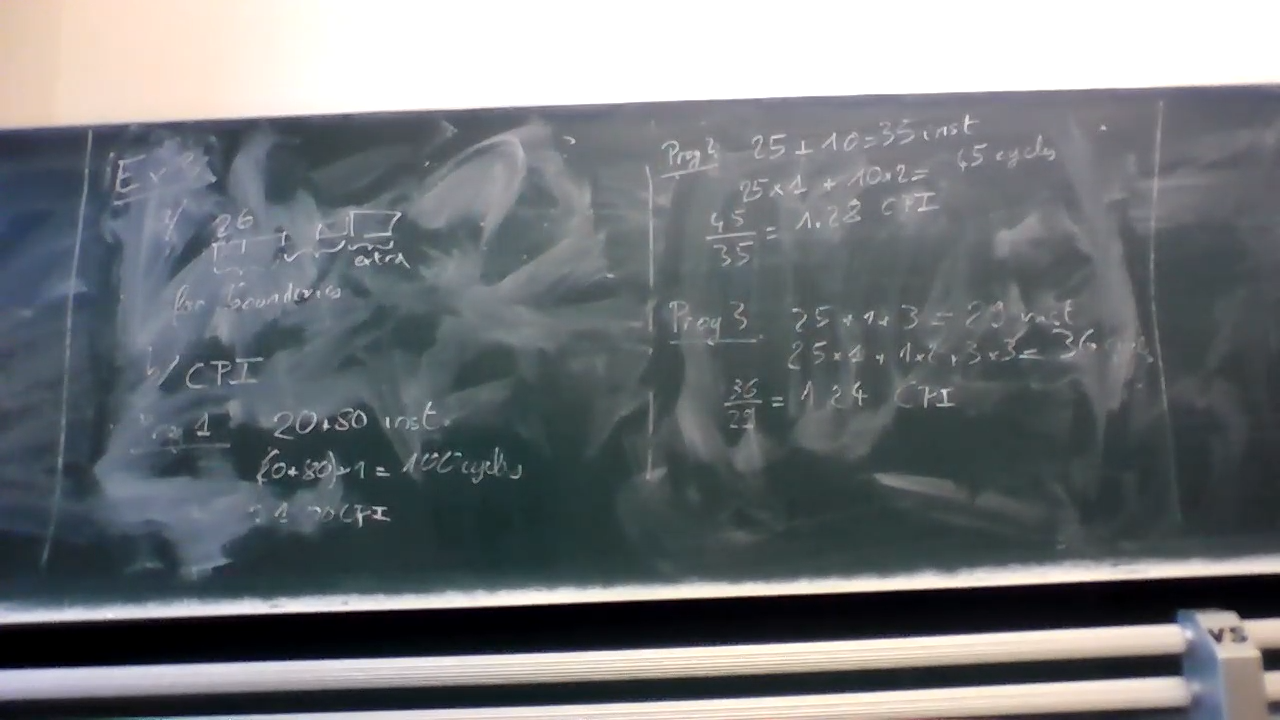 Ex
1/ 26
extra
for bounderies
1/ CPI
1 20+80 inst.
(20+80)×1 = 100 cycles
CPI
Prog 2 25 + 10 = 35 inst
25×1 + 10×2 = 45 cycles
45/35 = 1.28 CPI
Prog 3 25 + 1 + 3 = 29 inst
25×1 + 1×2 + 3×3 = 36
36/29 = 1.24 CPI
VS